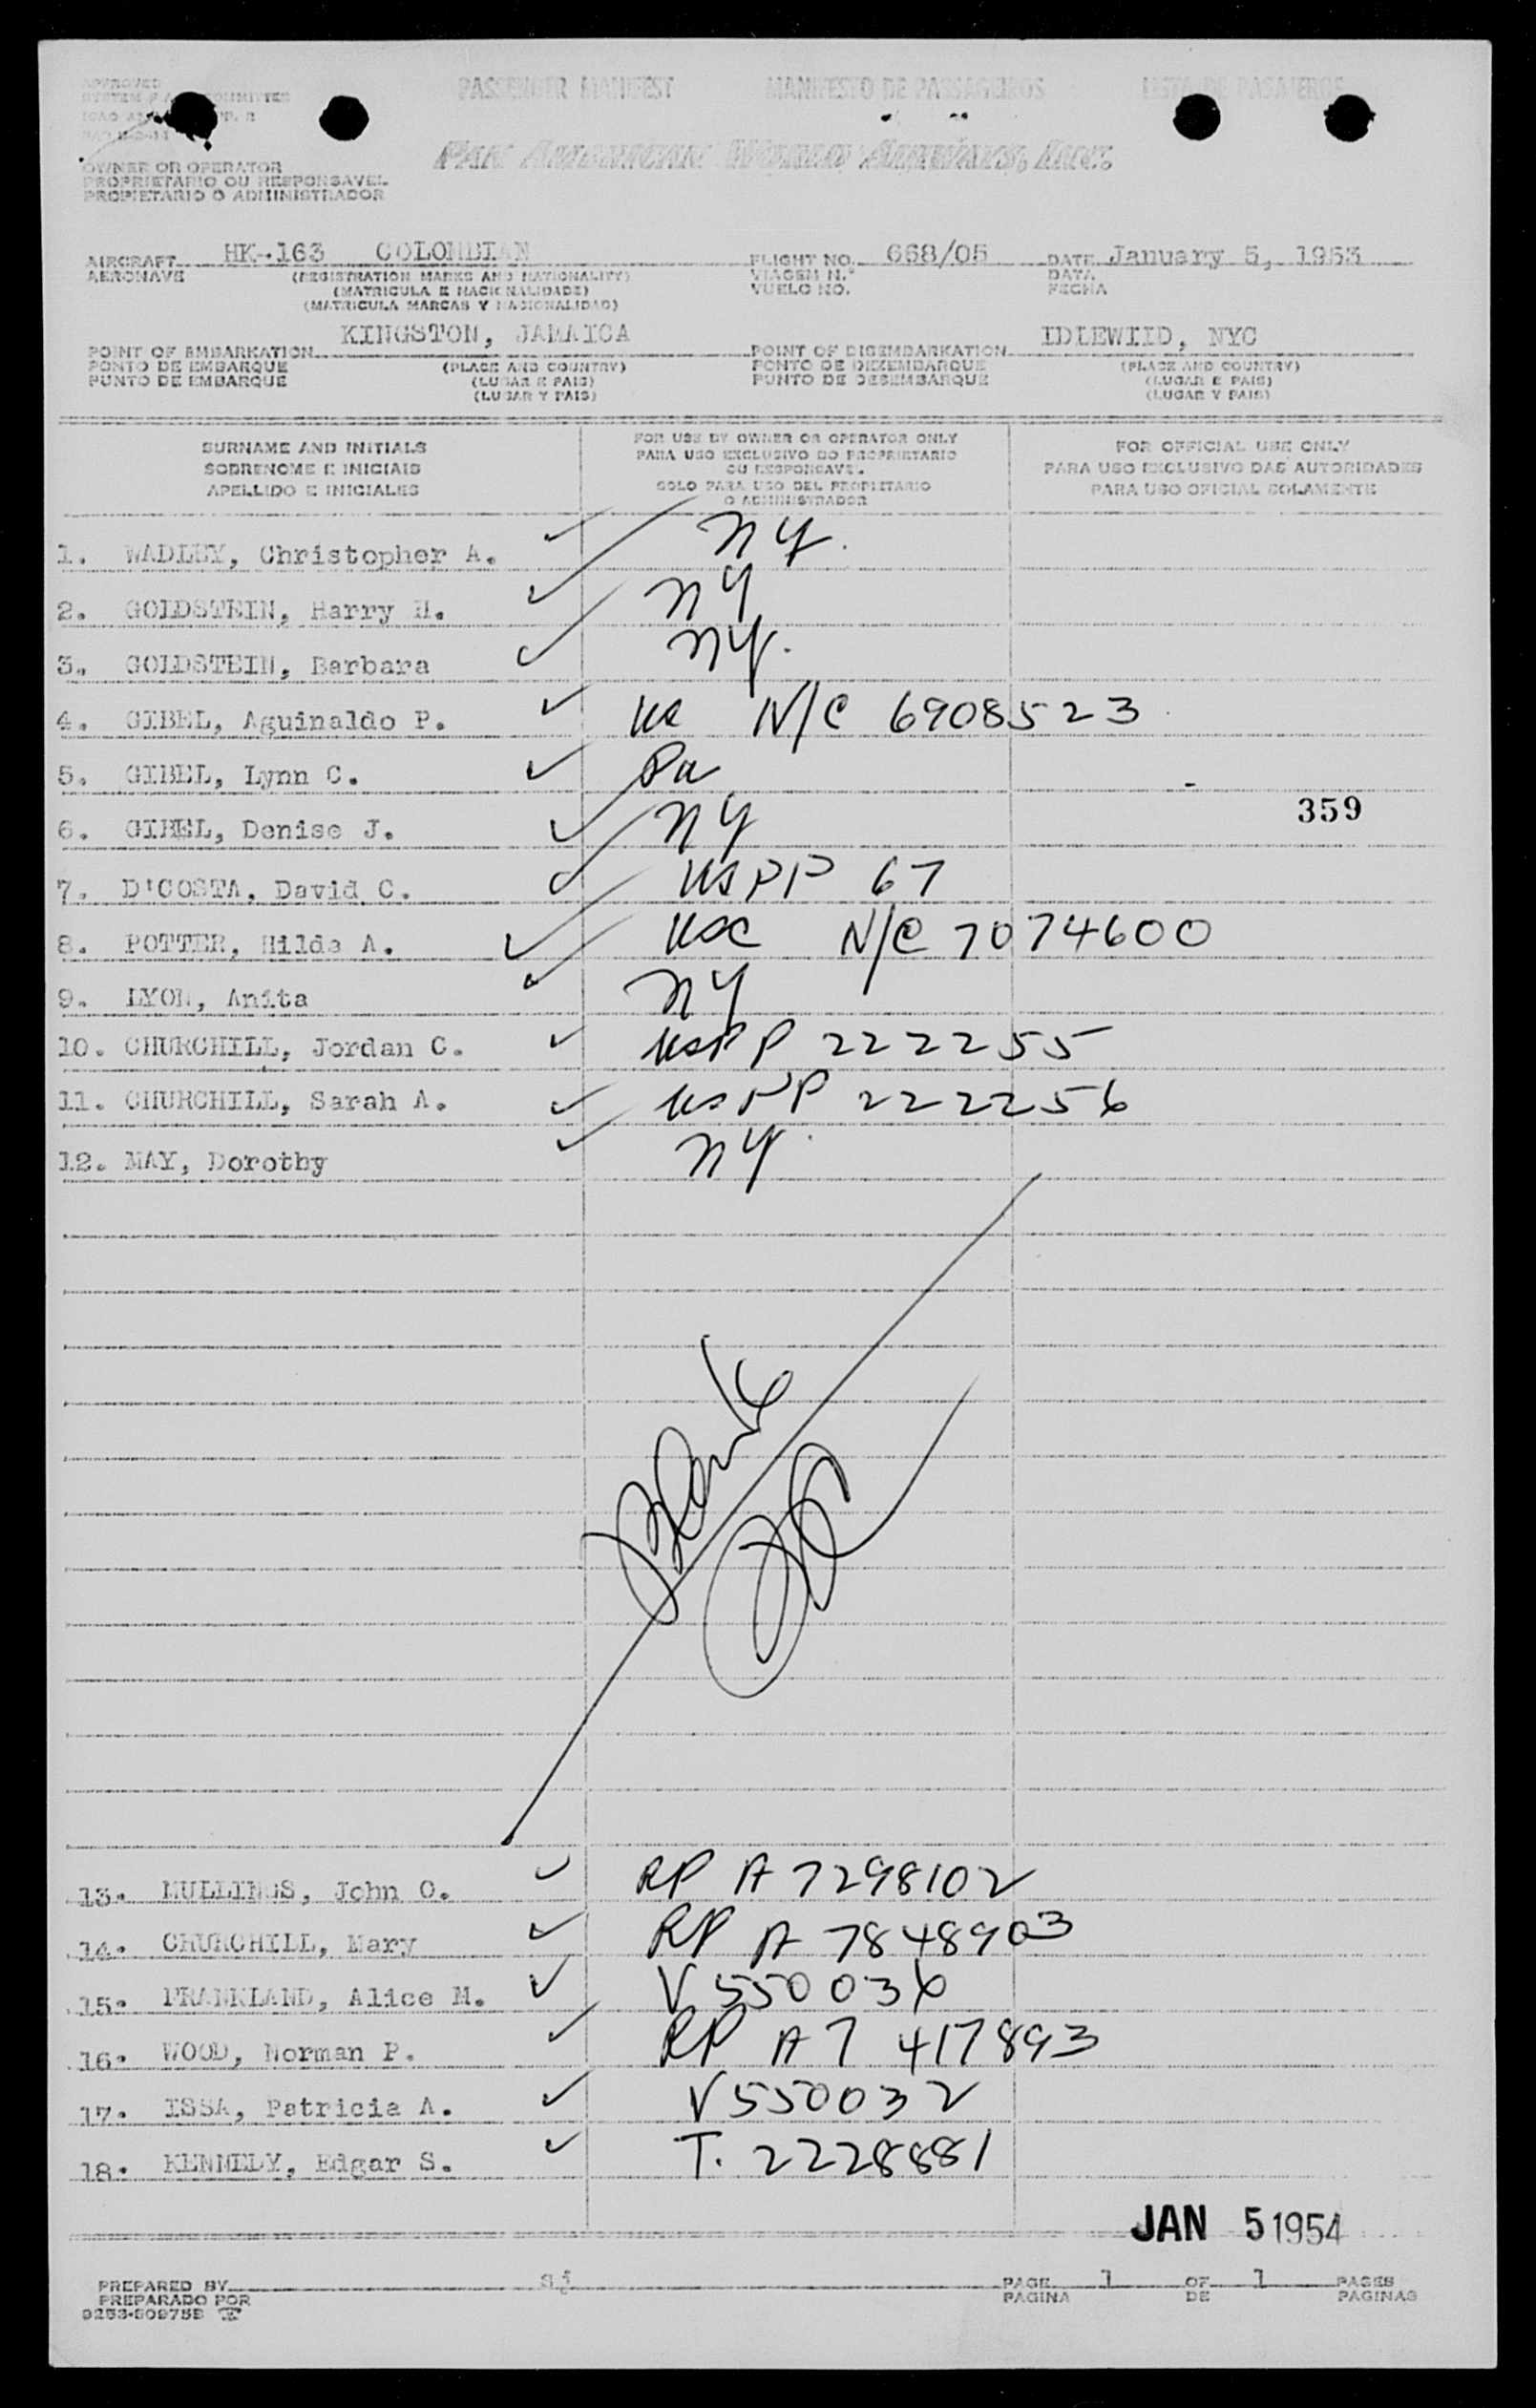 APPROVED
PASSENGER MANIFEST MANIFESTO DE PASSAGEIROS LISTA DE PASAJEROS
OWNER OR OPERATOR
PROPRIETARIO OU RESPONSAVEL
PROPIETARIO O ADMINISTRADOR
PAN AMERICAN WORLD AIRWAYS, INC.
AIRCRAFT HK-163 COLOMBIAN FLIGHT NO. 668/05 DATE January 5, 1953
AERONAVE (REGISTRATION MARKS AND NATIONALITY) VIAGEM N.º DATA
(MATRICULA E NACIONALIDADE) VUELO NO. FECHA
(MATRICULA MARCAS Y NACIONALIDAD)
KINGSTON, JAMAICA IDLEWIID, NYC
POINT OF EMBARKATION POINT OF DISEMBARKATION
PONTO DE EMBARQUE (PLACE AND COUNTRY) PONTO DE DEZEMBARQUE (PLACE AND COUNTRY)
PUNTO DE EMBARQUE (LUGAR E PAIS) PUNTO DE DESEMBARQUE (LUGAR E PAIS)
(LUGAR Y PAIS) (LUGAR Y PAIS)
SURNAME AND INITIALS FOR USE BY OWNER OR OPERATOR ONLY FOR OFFICIAL USE ONLY
SOBRENOME E INICIAIS PARA USO EXCLUSIVO DO PROPRIETARIO OU RESPONSAVEL PARA USO EXCLUSIVO DAS AUTORIDADES
APELLIDO E INICIALES SOLO PARA USO DEL PROPIETARIO O ADMINISTRADOR PARA USO OFICIAL SOLAMENTE
1. WADLEY, Christopher A. NY.
2. GOLDSTEIN, Harry H. NY
3. GOLDSTEIN, Barbara NY.
4. GIBEL, Aguinaldo P. US N/C 6908523
5. GIBEL, Lynn C. Pa
359
6. GIBEL, Denise J. NY
7. D'COSTA, David C. USPP 67
8. POTTER, Hilda A. USC N/C 7074600
9. LYON, Anita NY
10. CHURCHILL, Jordan C. USPP 222255
11. CHURCHILL, Sarah A. USPP 222256
12. MAY, Dorothy NY
Blank
13. MULLINGS, John O. RP A7298102
14. CHURCHILL, Mary RP A 7848903
15. FRANKLAND, Alice M. V550036
16. WOOD, Norman P. RP A7 417893
17. ISSA, Patricia A. V550032
18. KENNEDY, Edgar S. T. 2228881
JAN 5 1954
PREPARED BY sj PAGE 1 OF 1 PAGES
PREPARADO POR PAGINA DE PAGINAS